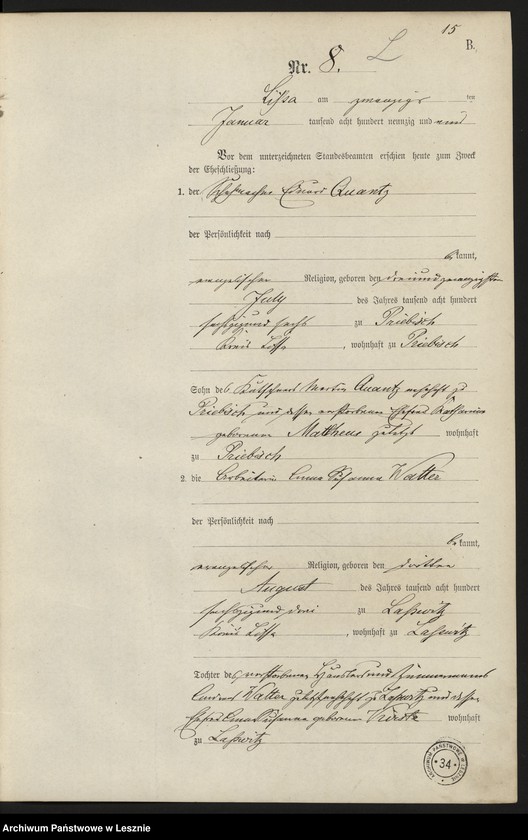 15
B.
Nr. 8.
Lissa am zwanzigsten
Januar tausend acht hundert neunzig und
Vor dem unterzeichneten Standesbeamten erschien heute zum Zweck
der Eheschließung:
1. der Eduard Quantz
der Persönlichkeit nach
bekannt,
evangelischer Religion, geboren den dreiundzwanzigsten
July des Jahres tausend acht hundert
sechszigund sechs zu Priebisch
Kreis Lissa, wohnhaft zu Priebisch
Sohn des Kutschers Martin Quantz wohnhaft zu
Priebisch und dessen verstorbenen Ehefrau Katharina
geborenen Mattheus zuletzt wohnhaft
zu Priebisch
2. die Arbeiterin Anna Susanna Walter
der Persönlichkeit nach
bekannt,
evangelischer Religion, geboren den dritten
August des Jahres tausend acht hundert
sechszigund drei zu Laßwitz
Kreis Lissa, wohnhaft zu Laßwitz
Tochter des verstorbenen Häuslers und Zimmermanns
Walter zuletzt wohnhaft zu Laßwitz und dessen
Ehefrau Anna Susanna geborenen wohnhaft
zu Laßwitz
ARCHIWUM PAŃSTWOWE W LESZNIE
34
Archiwum Państwowe w Lesznie